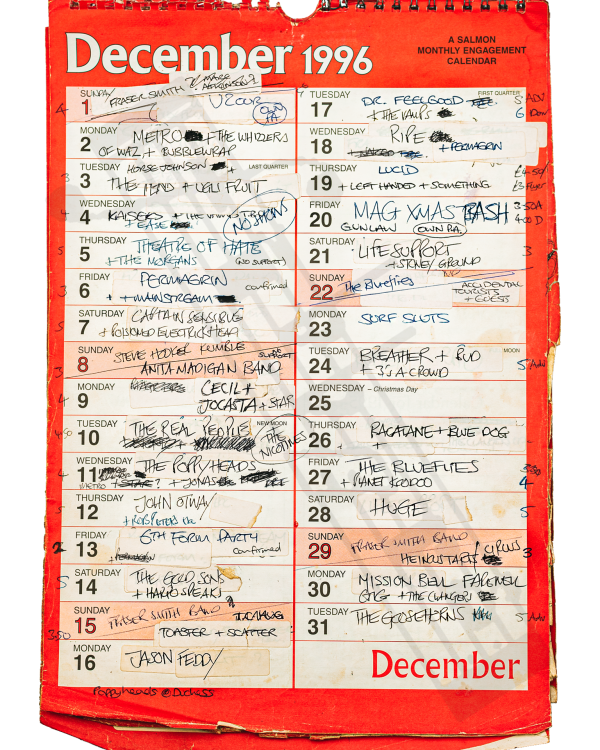 December 1996
A SALMON
MONTHLY ENGAGEMENT
CALENDAR
SUNDAY
1
4
FRASER SMITH
U2OUR
OWN
PA
MONDAY
2
METRO + THE WHIZZERS
OF WAZ + BUBBLEWRAP
TUESDAY HORSE JOHNSON +
LAST QUARTER
3
3
THE MIND + UGLI FRUIT
WEDNESDAY
4
KAISERS + THE
+ EASE
NO SHOWS
THURSDAY
5
5
THEATRE OF HATE
+ THE MORGANS
(NO SUPPORT)
FRIDAY
6
3
PERMAGRIN
+ + MAINSTREAM
confirmed
SATURDAY
7
5
CAPTAIN SENSIBLE
+ POISONED ELECTRICK HEAD
SUNDAY
8
3
STEVE HOOKER RUMBLE
AS
SUPPORT
ANITA MADIGAN BAND
MONDAY
9
4
CECIL +
JOCASTA + STAR
TUESDAY
10
4.50
THE REAL PEOPLE
NEW MOON
THE
NICOTINES
WEDNESDAY
11
4
THE POPPYHEADS
METRO
STAR? + JONAS
THURSDAY
12
JOHN OTWAY
FRIDAY
13
2
6TH FORM PARTY
confirmed
+ PERMAGRIN
SATURDAY
14
5
THE GOLD SONS
+ HARPO SPEAKS
SUNDAY
15
3.50
FRASER SMITH BAND
TOASTER + SCATTER
MONDAY
16
JASON FEDDY
Poppyheads @ Duchess
TUESDAY
FIRST QUARTER
17
DR. FEELGOOD
8 ADV
+ THE VAMPS
6 Dow
WEDNESDAY
18
RIPE
+ PERMAGRIN
THURSDAY
19
LUCID
£4.50
+ LEFT HANDED + SOMETHING
£3 Flyer
FRIDAY
20
MAG XMAS BASH
3.50A
4.00 D
GUNLAW
OWN P.A.
SATURDAY
21
LIFE SUPPORT
3
+ STONEY GROUND
SUNDAY
22
The Blueflies
NO
ACCIDENTAL
TOURISTS
+ GUEST
MONDAY
23
SURF SLUTS
TUESDAY
24
MOON
BREATHER + BUD
+ 3'S A CROWD
5 Adv
WEDNESDAY – Christmas Day
25
THURSDAY
26
RACATANE + BLUE DOG
+ +
FRIDAY
27
THE BLUEFLIES
3.50
+ PLANET KOODOO
4
SATURDAY
28
HUGE
5
SUNDAY
29
FRASER SMITH BAND
HEINOUSTARTS
CIRCUS
3
MONDAY
30
MISSION BELL FAREWELL
GTG + THE CLINGERS
TUESDAY
31
THE GOOSEHORNS
5 Adv
December